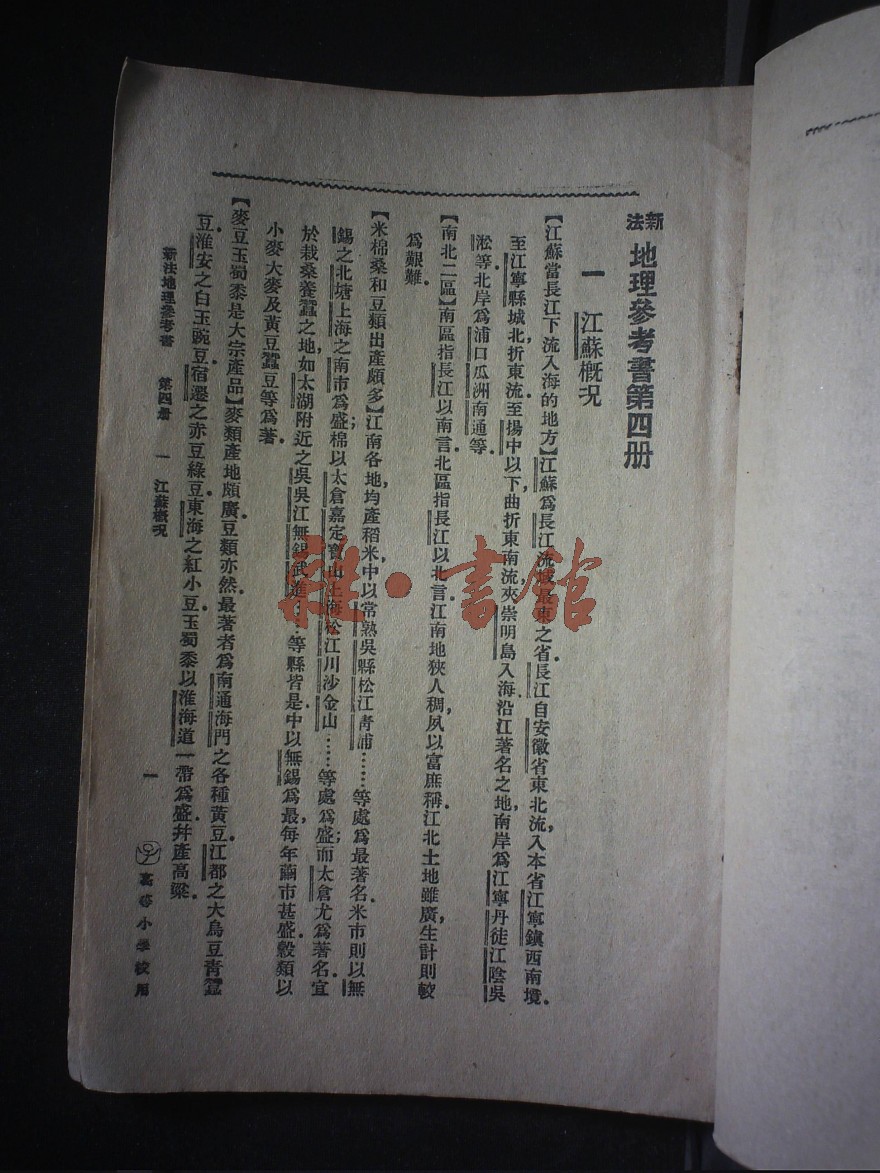 新法 地理參考書第四册
一 江蘇槪況
【江蘇當長江下流入海的地方】江蘇爲長江流域最東之省.長江自安徽省東北流,入本省江寧鎮西南境.
至江寧縣城北,折東流.至揚中以下,曲折東南流,夾崇明島入海.沿江著名之地,南岸爲江寧丹徒江陰吳
淞等.北岸爲浦口瓜洲南通等.
【南北二區】南區指長江以南言.北區指長江以北言.江南地狹人稠,夙以富庶稱.江北土地雖廣,生計則較
爲艱難.
【米棉桑和豆類出產頗多】江南各地,均產稻米.中以常熟吳縣松江靑浦……等處爲最著名.米市則以無
錫之北塘上海之南市爲盛;棉以太倉嘉定寶山上海松江川沙金山……等處爲盛;而太倉尤爲著名.宜
於栽桑養蠶之地,如太湖附近之吳吳江無錫武進……等縣皆是.中以無錫爲最,每年繭市甚盛.穀類以
小麥大麥及黃豆蠶豆等爲著.
【麥豆玉蜀黍是大宗產品】麥類產地頗廣.豆類亦然.最著者爲南通海門之各種黃豆.江都之大烏豆靑蠶
豆.淮安之白玉豌豆.宿遷之赤豆綠豆.東海之紅小豆.玉蜀黍以淮海道一帶爲盛.幷產高粱.
新法地理參考書 第四册 一 江蘇槪況 一 高等小學校用
雜·書館